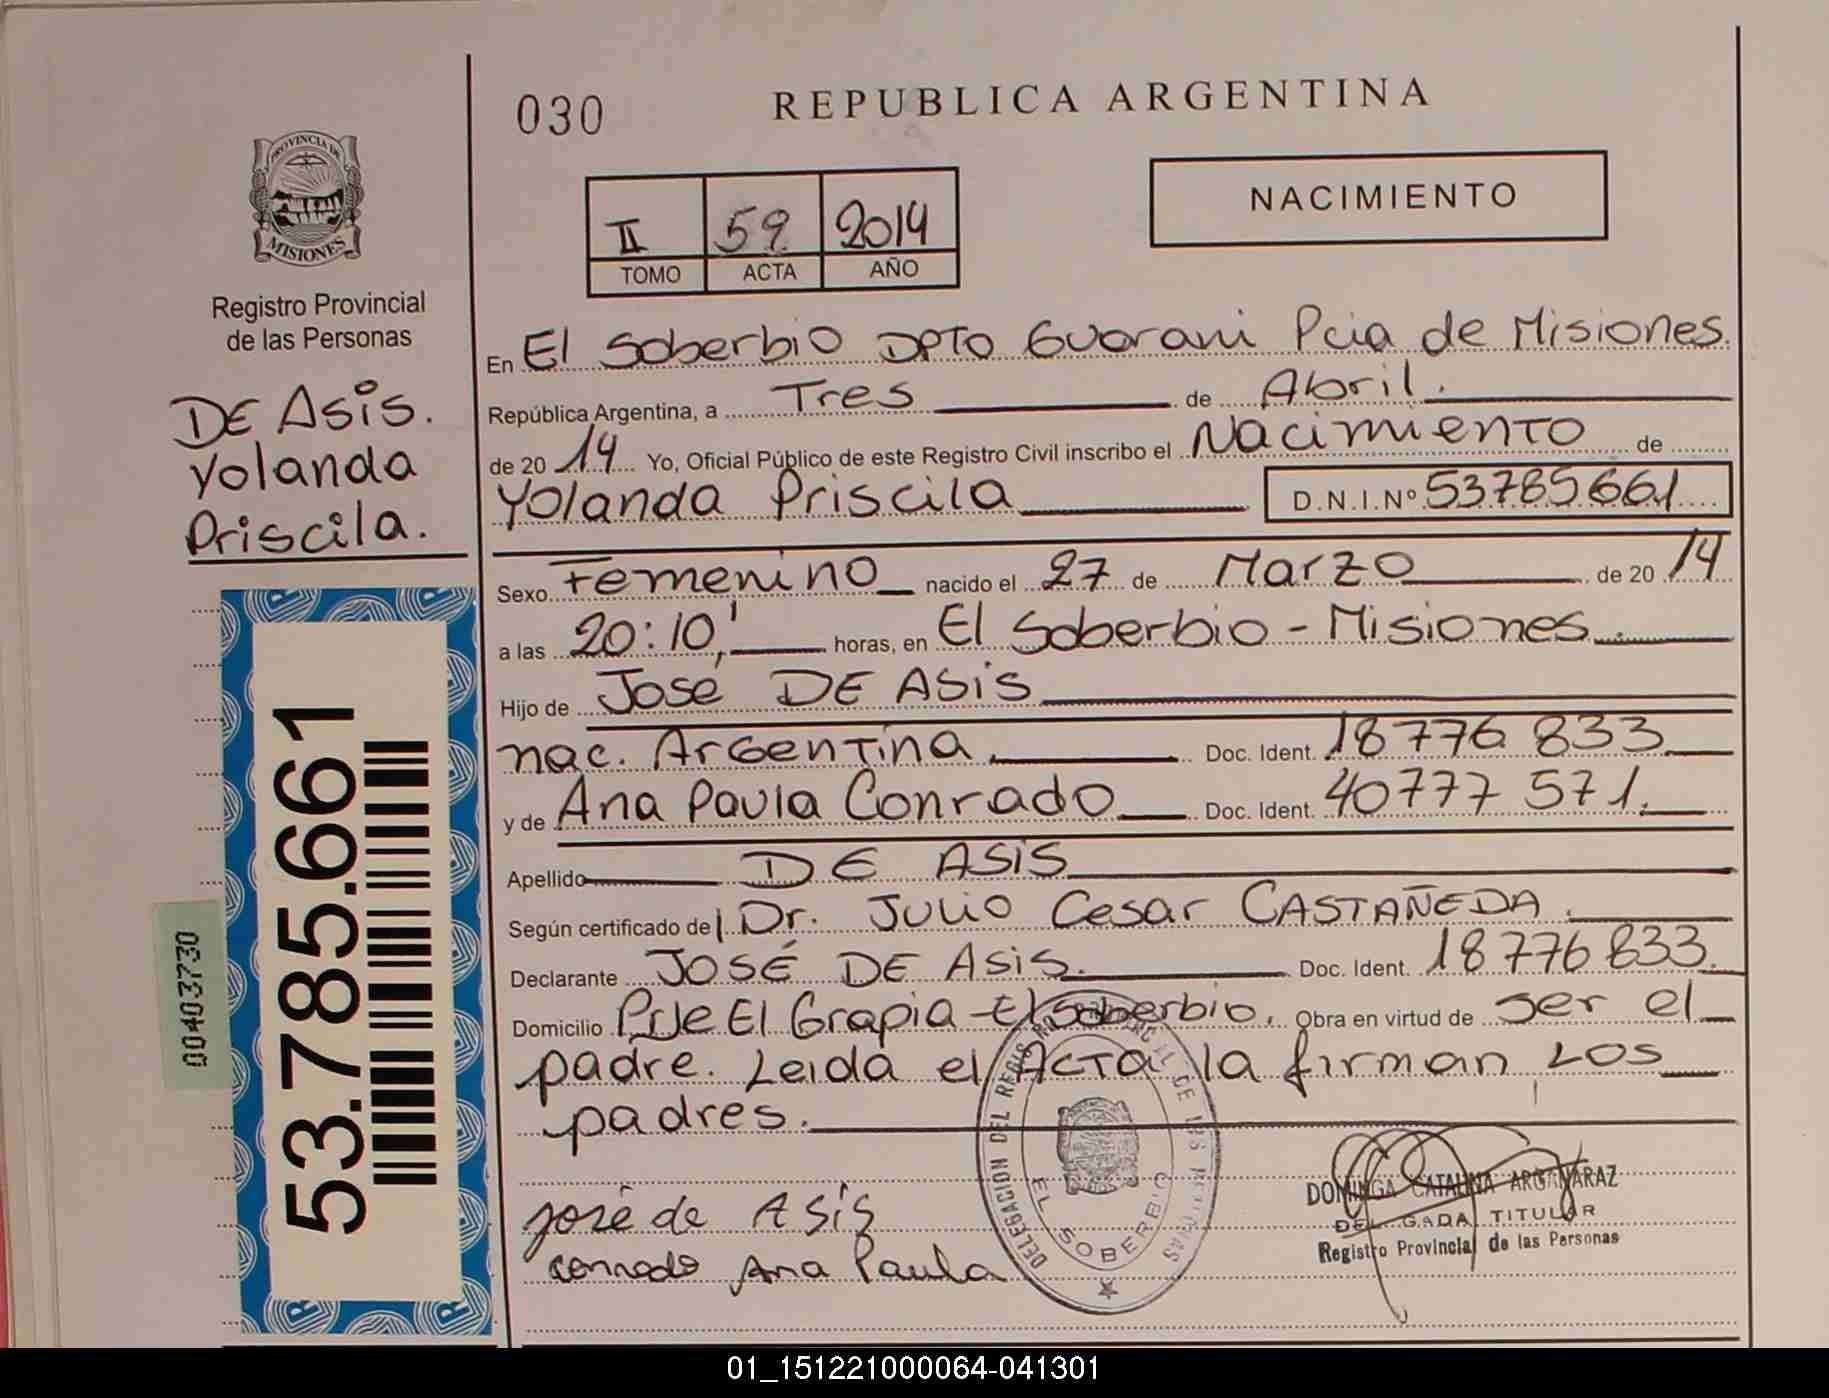 030
REPUBLICA ARGENTINA
PROVINCIA DE
MISIONES
Registro Provincial
de las Personas
DE ASIS.
Yolanda
Priscila.
II 59 2014
TOMO ACTA AÑO
NACIMIENTO
En El Soberbio DPTO Guarani Pcia de Misiones.
República Argentina, a Tres de Abril.
de 20 14 Yo, Oficial Público de este Registro Civil inscribo el Nacimiento de
Yolanda Priscila D.N.I.Nº 53785661
Sexo Femenino nacido el 27 de Marzo de 20 14
a las 20:10' horas, en El Soberbio - Misiones.
Hijo de Jose DE ASIS
nac. Argentina. Doc. Ident. 18776 833
y de Ana Paula Conrado Doc. Ident. 40777 571.
Apellido DE ASIS
Según certificado del Dr. Julio Cesar CASTAÑEDA.
Declarante JOSÉ DE ASIS. Doc. Ident. 18776 833.
Domicilio Pje El Grapia - El Soberbio. Obra en virtud de ser el
padre. Leida el ACTA la firman Los
padres.
josé de ASÍS
conrado Ana Paula
EL SOBERBIO
DOMINGA CATALINA ARGAÑARAZ
DELEGADA TITULAR
Registro Provincial de las Personas
53.785.661
004037730
01_151221000064-041301